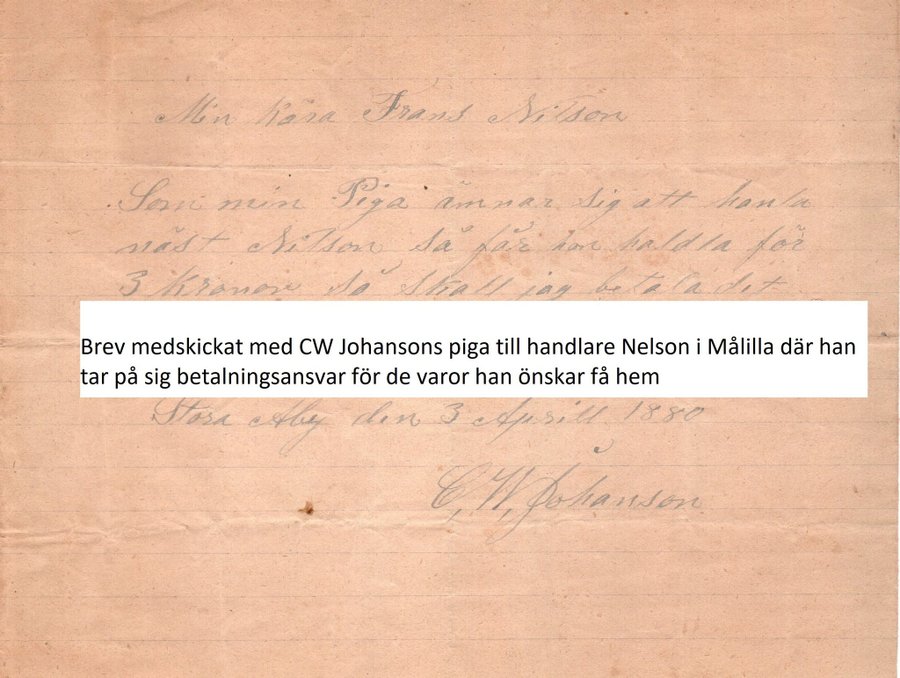 Min kära Frans Nilson
Som min Piga ämnar sig att hanla
näst Nilson så får hon haldla för
3 Kronor så skall jag betala det
Brev medskickat med CW Johansons piga till handlare Nelson i Målilla där han
tar på sig betalningsansvar för de varor han önskar få hem
Stora Aby den 3 Aprill 1880
C, W, Johanson